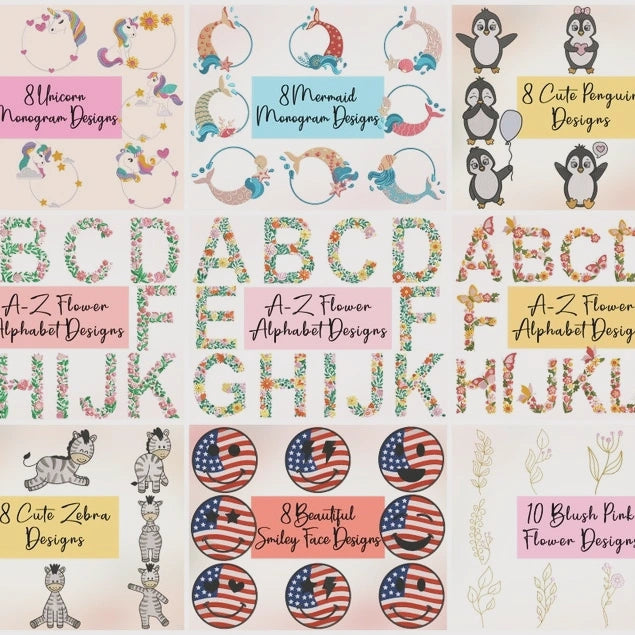 8 Unicorn
Monogram Designs
8 Mermaid
Monogram Designs
8 Cute Penguin
Designs
B C D
A B C D
A B C D
A-Z Flower
Alphabet Designs
F
E
A-Z Flower
Alphabet Designs
F
F
A-Z Flower
Alphabet Designs
H I J K
G H I J K
H I J K L
8 Cute Zebra
Designs
8 Beautiful
Smiley Face Designs
10 Blush Pink
Flower Designs